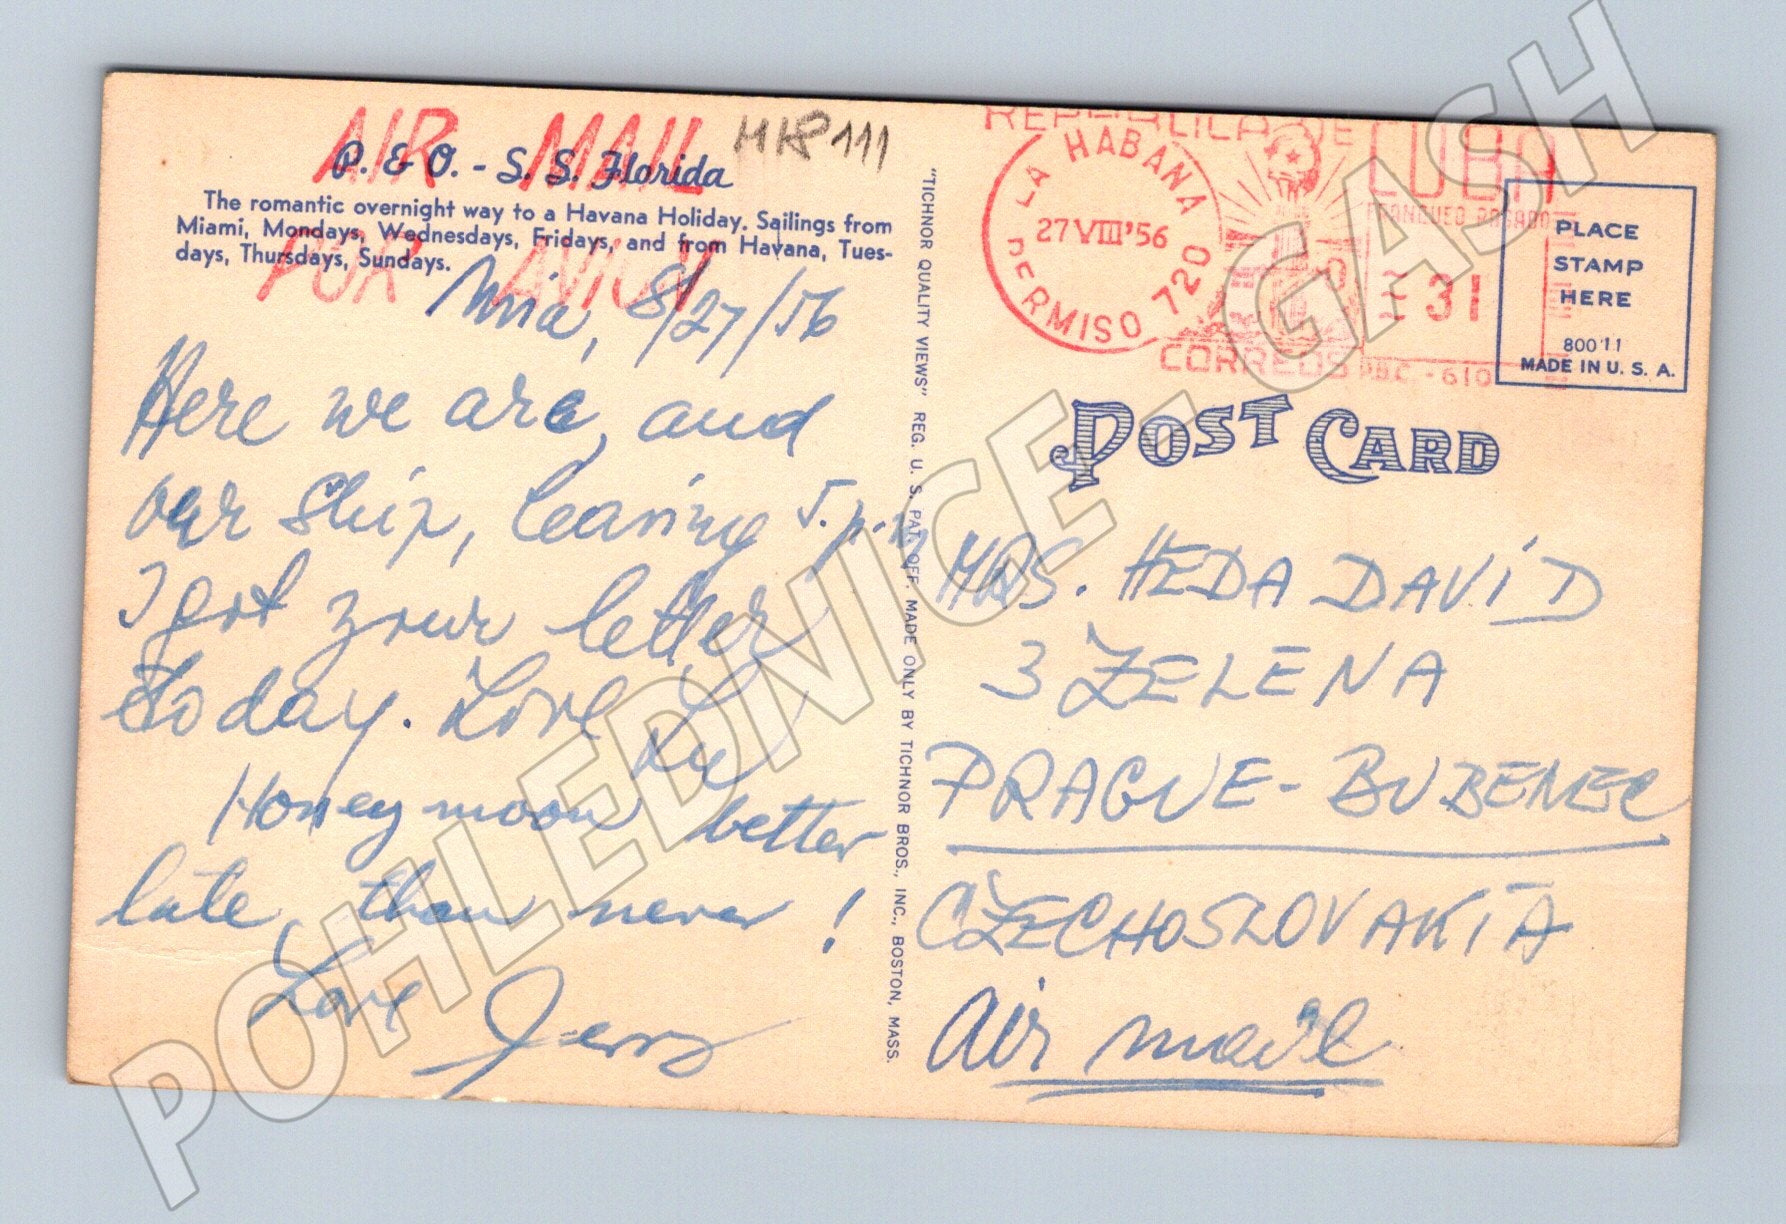 AIR MAIL
POR AVION
MK8 111
P. & O. - S. S. Florida
The romantic overnight way to a Havana Holiday. Sailings from
Miami, Mondays, Wednesdays, Fridays, and from Havana, Tues-
days, Thursdays, Sundays.
8/27/56
Here we are, and
our ship, leaving 5 p.m
I got your letter
today. Love
Honeymoon better
late, than never!
Love
Jerry
"TICHNOR QUALITY VIEWS" REG. U. S. PAT. OFF. MADE ONLY BY TICHNOR BROS., INC., BOSTON, MASS.
REPUBLICA DE CUBA
LA HABANA
27 VIII '56
PERMISO 720
FRANQUEO PAGADO
31
CORREOS
PBC.-610
PLACE
STAMP
HERE
800 11
MADE IN U. S. A.
POST CARD
MRS. HEDA DAVID
3 ZELENA
PRAGUE-BUBENEC
CZECHOSLOVAKIA
Air mail
POHLEDNICE_GASH